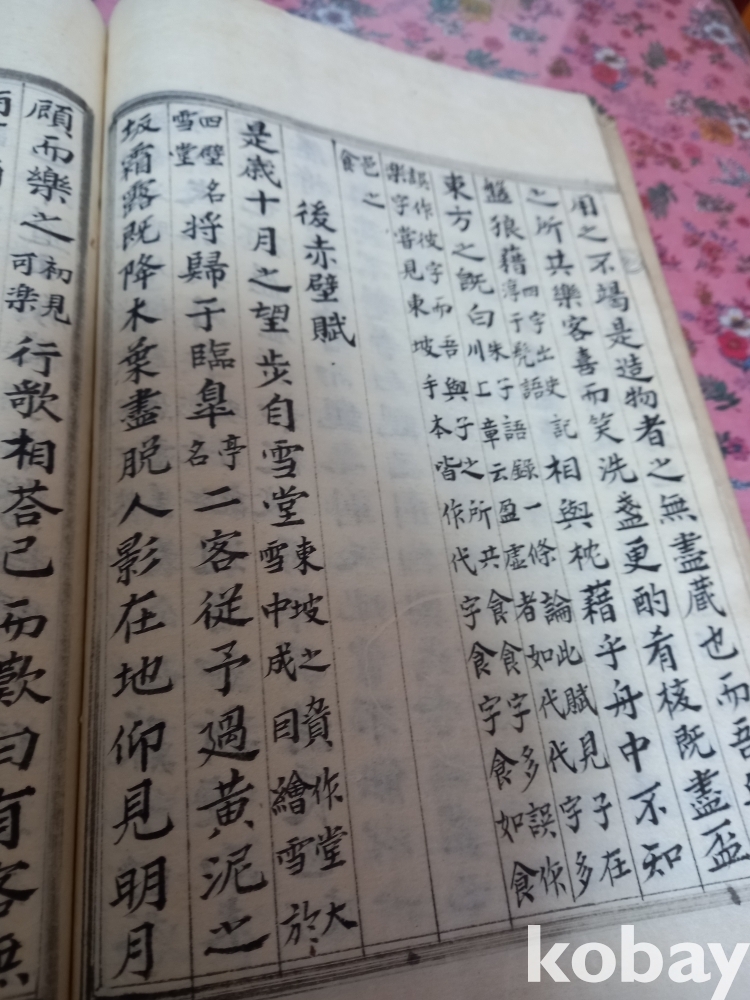 用之不竭是造物者之無盡蔵也而吾
之所共樂客喜而笑洗盞更酌肴核既盡盃
盤狼藉四字出史記淳于髡語相與枕藉乎舟中不知
東方之既白朱子語錄一條論此賦見子在川上章云盈虛者如代代字多
誤作彼字而吾與子之所共食食字多誤作樂字嘗見東坡手本皆作代字食字食如食
邑之食
後赤壁賦
是歲十月之望步自雪堂東坡之作堂大雪中成因繪雪於
四壁名雪堂將歸于臨皐亭名二客從予過黃泥之
坂霜露既降木葉盡脫人影在地仰見明月
顧而樂之初見可楽行歌相荅已而歎曰有客無
kobay